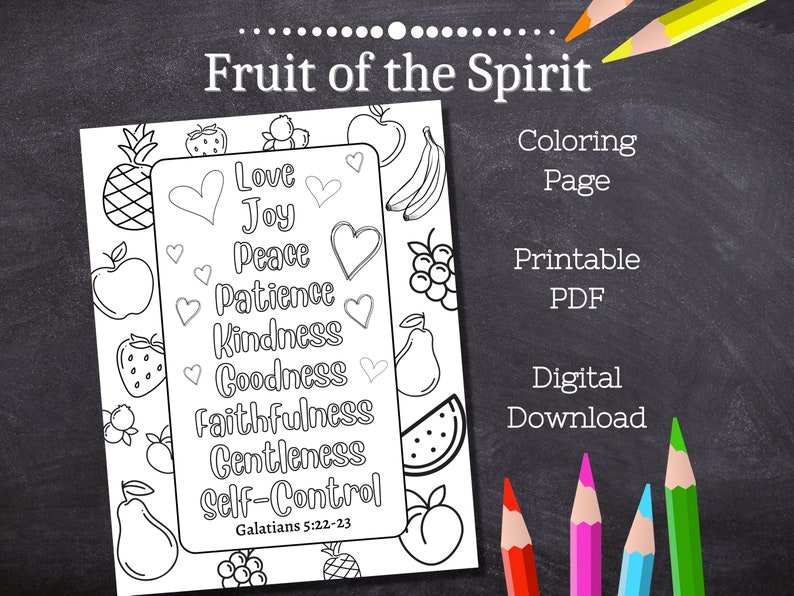 Fruit of the Spirit
Love
Joy
Peace
Patience
Kindness
Goodness
Faithfulness
Gentleness
Self-Control
Galatians 5:22-23
Coloring
Page
Printable
PDF
Digital
Download